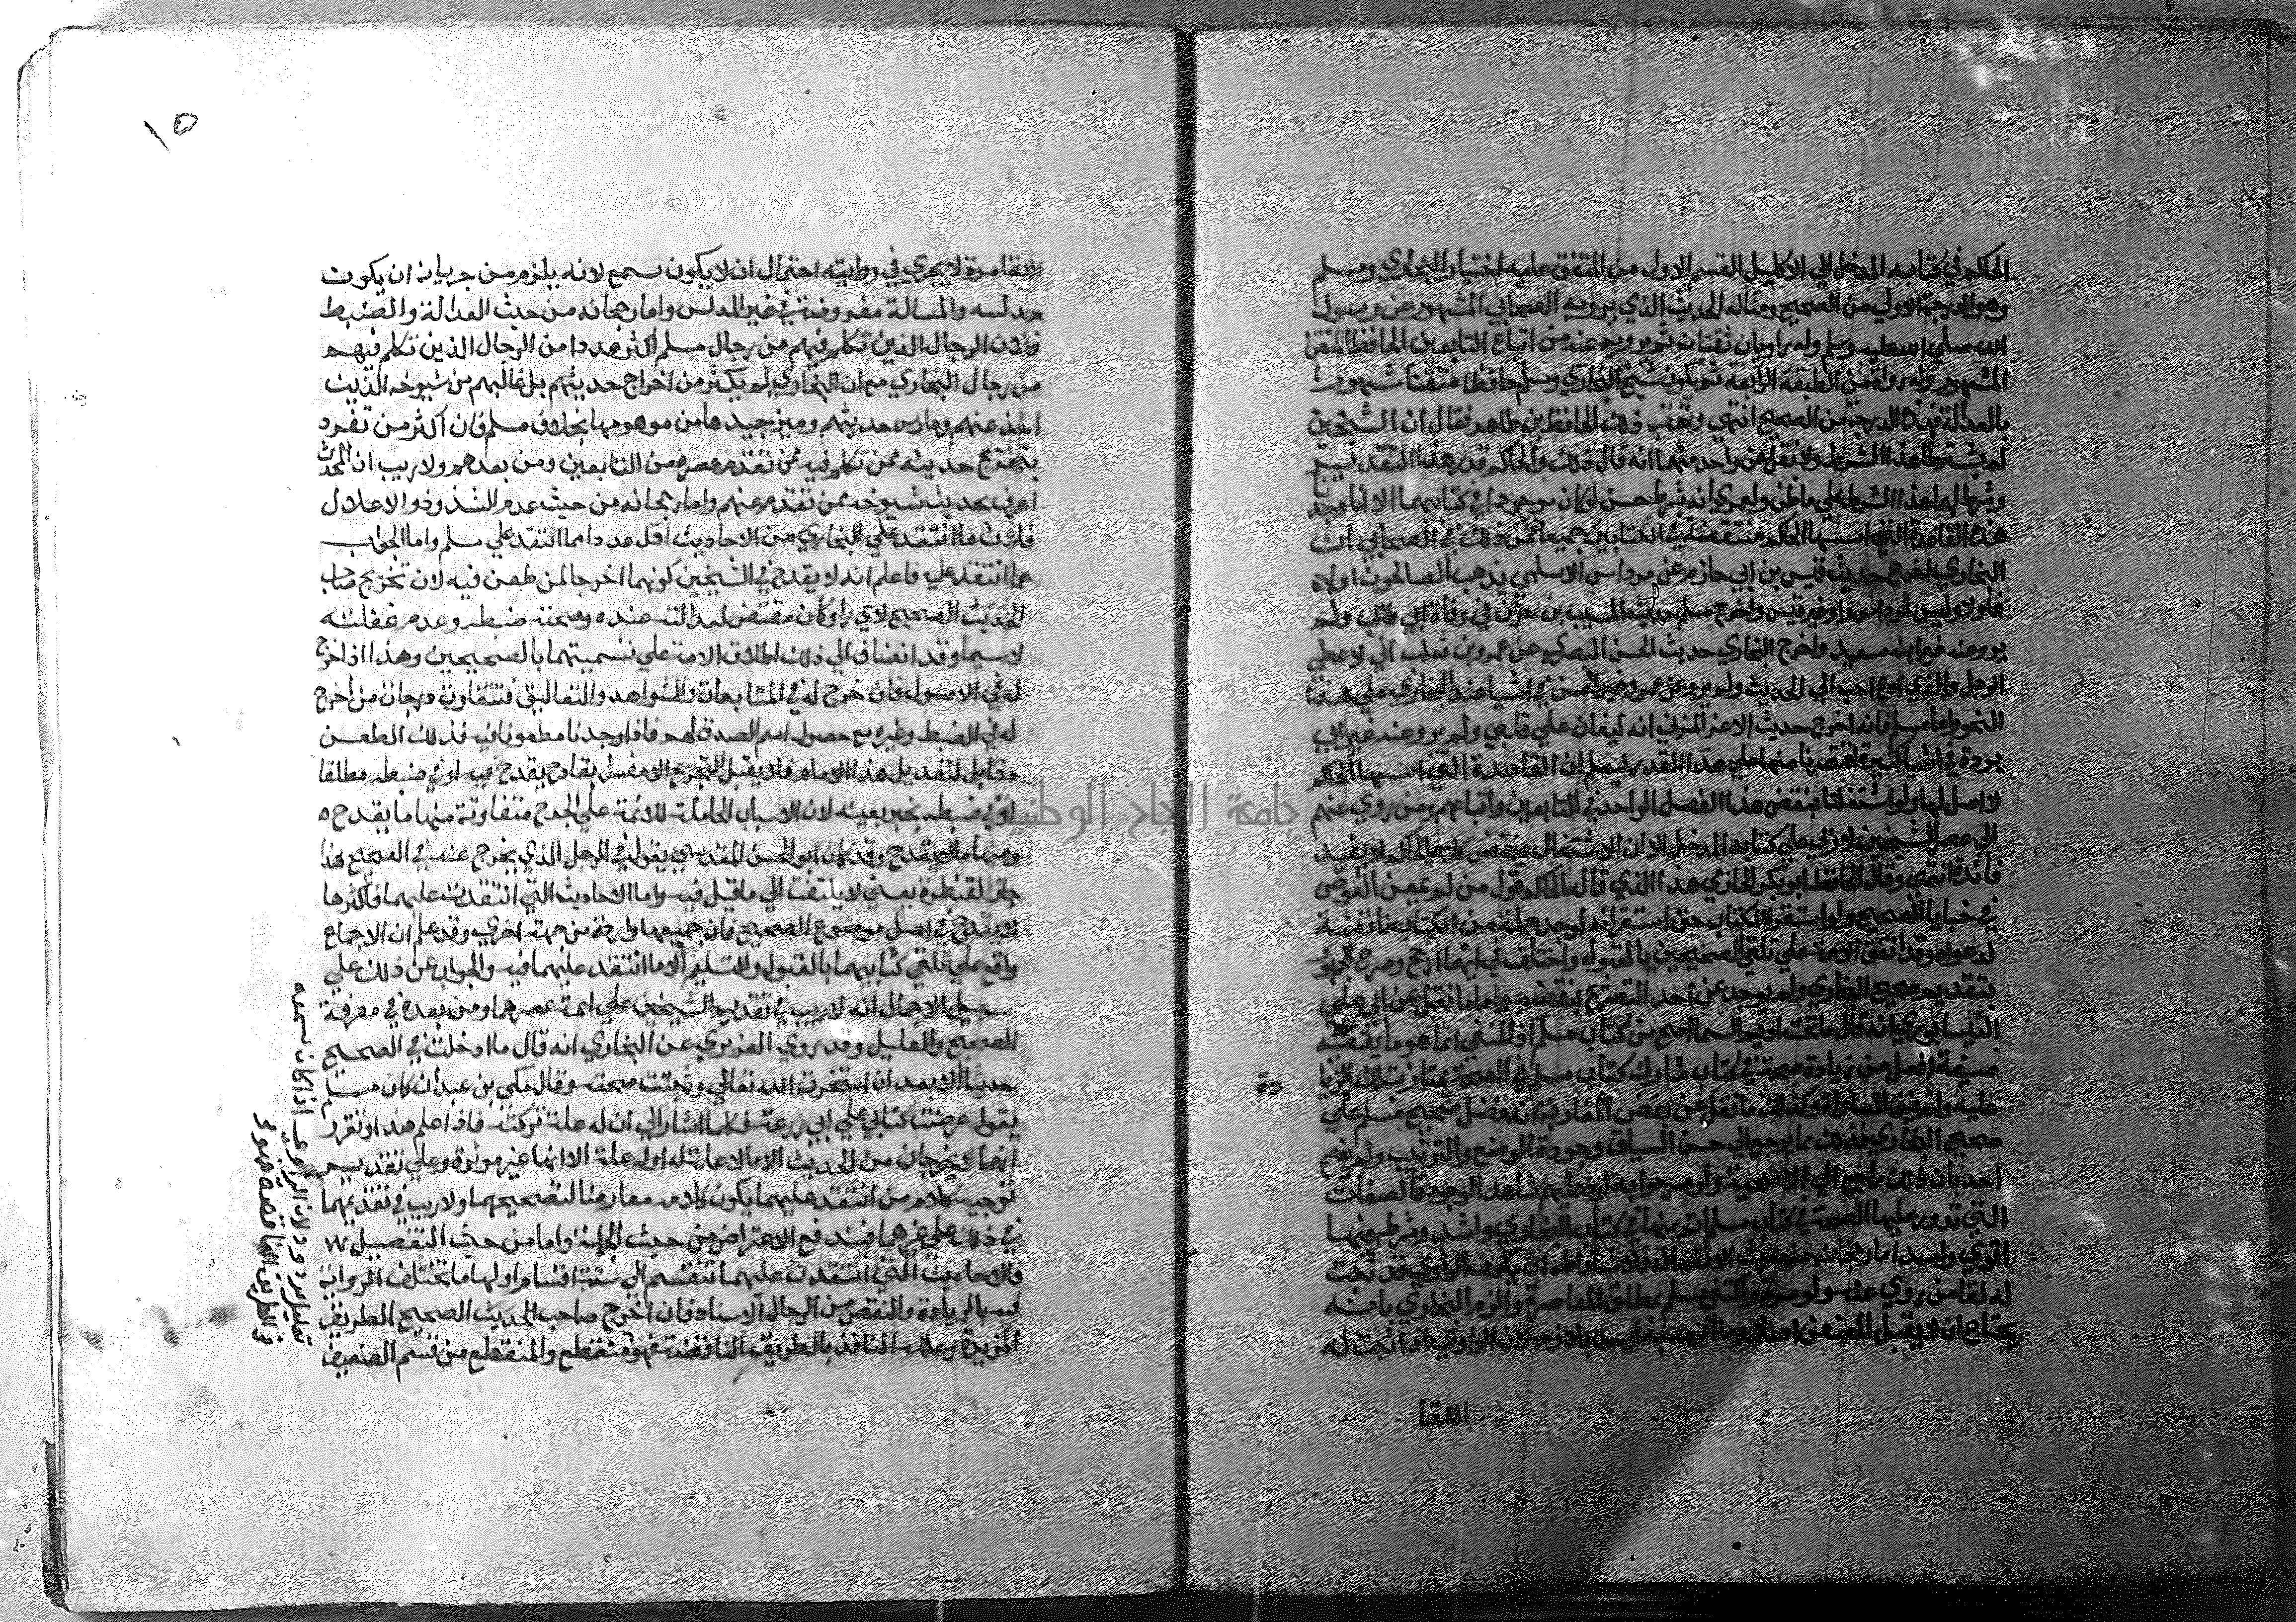 الحاكم في كتابه المدخل الي الاكليل القسم الاول من المتفق عليه اختيار البخاري ومسلم
وهو الدرجة الاولي من الصحيح ومثاله الحديث الذي يرويه الصحابي المشهور عن رسول
الله صلي الله عليه وسلم وله راويان ثقتان ثم يرويه عنه من اتباع التابعين الحافظ المتقن
المشهور وله رواة من الطبقة الرابعة ثم يكون شيخ البخاري ومسلم حافظا متقنا مشهورا
بالعدالة فهذه الدرجة من الصحيح انتهي وتعقب ذلك الحافظ بن طاهر فقال ان الشيخين
لم يشترطا هذا الشرط ولا نقل عن واحد منهما انه قال ذلك والحاكم قدر هذا التقدير
وشرط لهما هذا الشرط علي ما ظن ولعمري انه شرط حسن لو كان موجودا في كتابيهما الا انا وجدنا
هذه القاعدة التي اسسها الحاكم منتقضة في الكتابين جميعا فمن ذلك في الصحابي ان
البخاري اخرج حديث قيس بن ابي حازم عن مرداس الاسلمي يذهب الصالحون اولا
فاولا وليس لمرداس راو غير قيس واخرج مسلم حديث المسيب بن حزن في وفاة ابي طالب ولم
يرو عنه غير ابنه سعيد واخرج البخاري حديث الحسن البصري عن عمرو بن تغلب اني لاعطي
الرجل والذي ادع احب الي الحديث ولم يرو عن عمرو غير الحسن في اشيا عند البخاري علي هذا
النحو واما مسلم فانه اخرج حديث الاغر المزني انه ليغان علي قلبي ولم يرو عنه غير ابي
بردة في اشيا كثيرة اقتصرنا منها علي هذا القدر ليعلم ان القاعدة التي اسسها الحاكم
لا اصل لها ولو اشتغلنا بنقض هذا الفصل الواحد في التابعين واتباعهم ومن روي عنهم
الي عصر الشيخين لاربي علي كتابه المدخل الا ان الاشتغال بنقض كلام الحاكم لا يفيد
فائدة انتهي وقال الحافظ ابو بكر الحازمي هذا الذي قاله الحاكم قول من لم يمعن الغوص
في خبايا الصحيح ولو استقرا الكتاب حق استقرائه لوجد جملة من الكتاب ناقضة
لدعواه وقد اتفق الامة علي تلقي الصحيحين بالقبول واختلف في ايهما ارجح وصرح الجمهور
بتقديم صحيح البخاري ولم يوجد عن احد التصريح بنقضه واما ما نقل عن ابي علي
النيسابوري انه قال ما تحت اديم السما اصح من كتاب مسلم اذ المنفي انما هو ما يقتضيه
صيغة افعل من زيادة صحة في كتاب شارك كتاب مسلم في الصحة يمتاز بتلك الزيا
دة
عليه ولم ينف المساواة وكذلك ما نقل عن بعض المغاربة انه فضل صحيح مسلم علي
صحيح البخاري فذلك مما يرجع الي حسن السياق وجودة الوضع والترتيب ولم يفصح
احد بان ذلك راجع الي الاصحية ولو صرحوا به لرد عليهم شاهد الوجود فالصفات
التي تدور عليها الصحة في كتاب مسلم اتم منها في كتاب البخاري واشد وشرطه فيها
اقوي واسد اما رجحانه من حيث الاتصال فلاشتراطه ان يكون الراوي قد ثبت
له لقا من روي عنه ولو مرة واكتفي مسلم بمطلق المعاصرة والزم البخاري بانه
يحتاج ان لا يقبل المعنعن اصلا وما الزمه به ليس بلازم لان الراوي اذا ثبت له
اللقا
١٥
اللقا مرة لا يجري في روايته احتمال ان لا يكون سمع لانه يلزم من جريانه ان يكون
مدلسه والمسالة مفروضة في غير المدلس واما رجحانه من حيث العدالة والضبط
فلان الرجال الذين تكلم فيهم من رجال مسلم اكثر عددا من الرجال الذين تكلم فيهم
من رجال البخاري مع ان البخاري لم يكثر من اخراج حديثهم بل غالبهم من شيوخه الذين
اخذ عنهم ومارس حديثهم وميز جيدها من موهومها بخلاف مسلم فان اكثر من تفرد
بتخريج حديثه ممن تكلم فيه ممن تقدم عصره من التابعين ومن بعدهم ولا ريب ان المحدث
اعرف بحديث شيوخه ممن تقدم عنهم واما رجحانه من حيث عدم الشذوذ والاعلال
فلان ما انتقد علي البخاري من الاحاديث اقل عددا مما انتقد علي مسلم واما الجواب
عما انتقد عليه فاعلم انه لا يقدح في الشيخين كونهما اخرجا لمن طعن فيه لان تخريج صاحب
الحديث الصحيح لاي راو كان مقتض لعدالته عنده وصحة ضبطه وعدم غفلته
لا سيما وقد انضاف الي ذلك اطلاق الامة علي تسميتهما بالصحيحين وهذا اذا خرج
له في الاصول فان خرج له في المتابعات والشواهد والتعاليق فتتفاوت درجات من اخرج
له في الضبط وغيره مع حصول اسم الصدق لهم فاذا وجدنا مطعونا فيه فذلك الطعن
مقابل لتعديل هذا الامام فلا يقبل التجريح الا مفسرا بقادح يقدح فيه او في ضبطه مطلقا
او في ضبطه بخبر بعينه لان الاسباب الحاملة للائمة علي الجرح متفاوتة منها ما يقدح
ومنها ما لا يقدح وقد كان ابو الحسن المقدسي يقول في الرجل الذي يخرج عنه في الصحيح هذا
جاز القنطرة يعني لا يلتفت الي ما قيل فيه واما الاحاديث التي انتقدت عليهما فاكثرها
لا يقدح في اصل موضوع الصحيح فان جميعها واردة من جهة اخري وقد علم ان الاجماع
واقع علي تلقي كتابيهما بالقبول والتسليم الا ما انتقد عليهما فيه والجواب عن ذلك علي
سبيل الاجمال انه لا ريب في تقديم الشيخين علي ائمة عصرهما ومن بعده في معرفة
الصحيح والعليل وقد روي الفربري عن البخاري انه قال ما ادخلت في الصحيح
حديثا الا بعد ان استخرت الله تعالي وتثبتت صحته وقال مكي بن عبدان كان مسلم
يقول عرضت كتابي علي ابي زرعة فكلما اشار الي ان له علة تركته فاذا علم هذا وتقرر
انهما لا يخرجان من الحديث الا ما لا علة له او له علة الا انها غير موثرة وعلي تقدير
توجيه كلام من انتقد عليهما يكون كلامه معارضا لتصحيحهما ولا ريب في تقديمهما
في ذلك علي غيرهما فيندفع الاعتراض من حيث الجملة واما من حيث التفصيل
فالاحاديث التي انتقدت عليهما تنقسم الي ستة اقسام اولها ما تختلف الرواة
فيه بالزيادة والنقص من رجال الاسناد فان اخرج صاحب الحديث الصحيح الطريق
المزيدة وعلله الناقد بالطريق الناقصة فهو منقطع والمنقطع من قسم الضعيف
جامعة النجاح الوطنية